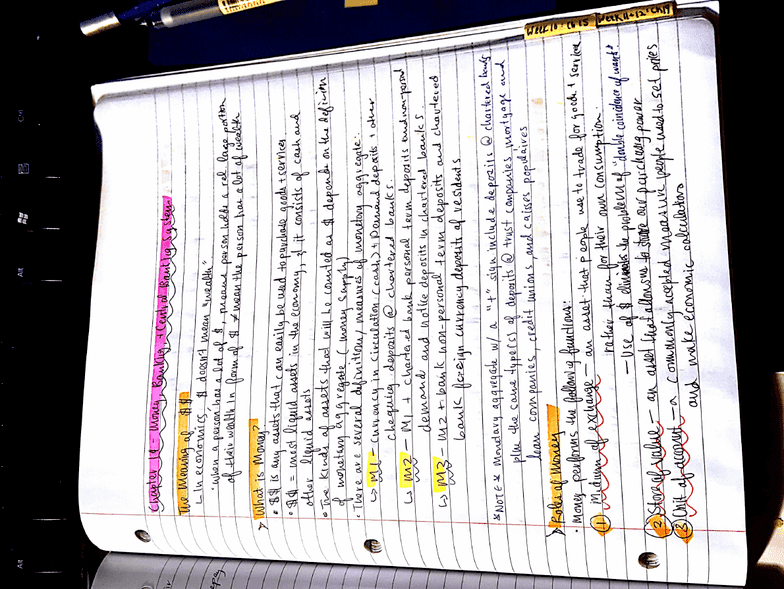 Week 10: Ch 15
Week 11+12: Ch 14
Chapter 14 - Money, Banking, + Central Banking System
The Meaning of $$
In economics $ doesn't mean "wealth"
· When a person has a lot of $ → means person holds a rel. large portion
of their wealth in form of $ ≠ mean the person has a lot of wealth
> What is Money?
· $$ is any assets that can easily be used to purchase goods + services
· $$ = most liquid assets in the economy, it consists of cash and
other liquid assets
· The kinds of assets that will be counted as $ depends on the definition
of monetary aggregate (money supply)
· There are several definition/measures of monetary aggregate:
↳ M1 - currency in circulation (cash) + Demand deposits + other
chequing deposits @ chartered banks.
↳ M2 - M1 + chartered bank personal term deposits and non-personal
demand and notice deposits in chartered banks
↳ M3 - M2 + bank non-personal term deposits and chartered
bank foreign currency deposits of residents.
*NOTE* Monetary aggregate w/ a "+" sign include deposits @ chartered banks
plus the same type(s) of deposits @ trust companies, mortgage and
loan companies, credit unions, and caisses populaires
> Roles of Money
· Money performs the following functions:
① Medium of exchange - an asset that people use to trade for goods + service
rather than for their own consumption.
- Use of $ eliminates the problem of "double coincidence of wants"
② Store of Value - an asset that allows us to store our purchasing power
③ Unit of account - a commonly accepted measure people used to set prices
and make economic calculations